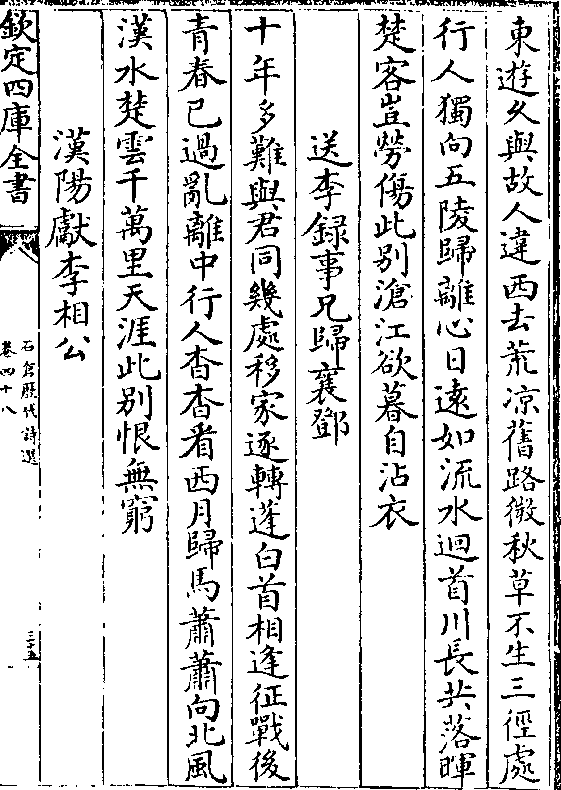 東遊久與故人違西去荒凉舊路微秋草不生三徑處
行人獨向五陵歸離心日遠如流水迴首川長共落暉
楚客豈勞傷此别滄江欲暮自沾衣
送李録事兄歸襄鄧
十年多難與君同幾處移家逐轉蓬白首相逢征戰後
青春已過亂離中行人杳杳看西月歸馬蕭蕭向北風
漢水楚雲千萬里天涯此别恨無窮
漢陽獻李相公
欽定四庫全書
石倉歴代詩選
卷四十八
三十五